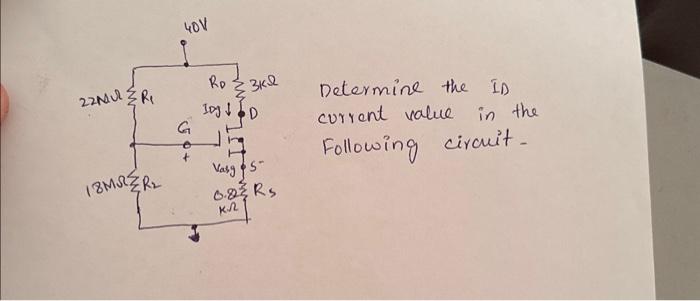 40V
22MΩ R1
RD 3KΩ
IDq ↓ D
G
+
VGSq S -
18MΩ R2
0.82 RS
KΩ
Determine the ID
current value in the
Following circuit -